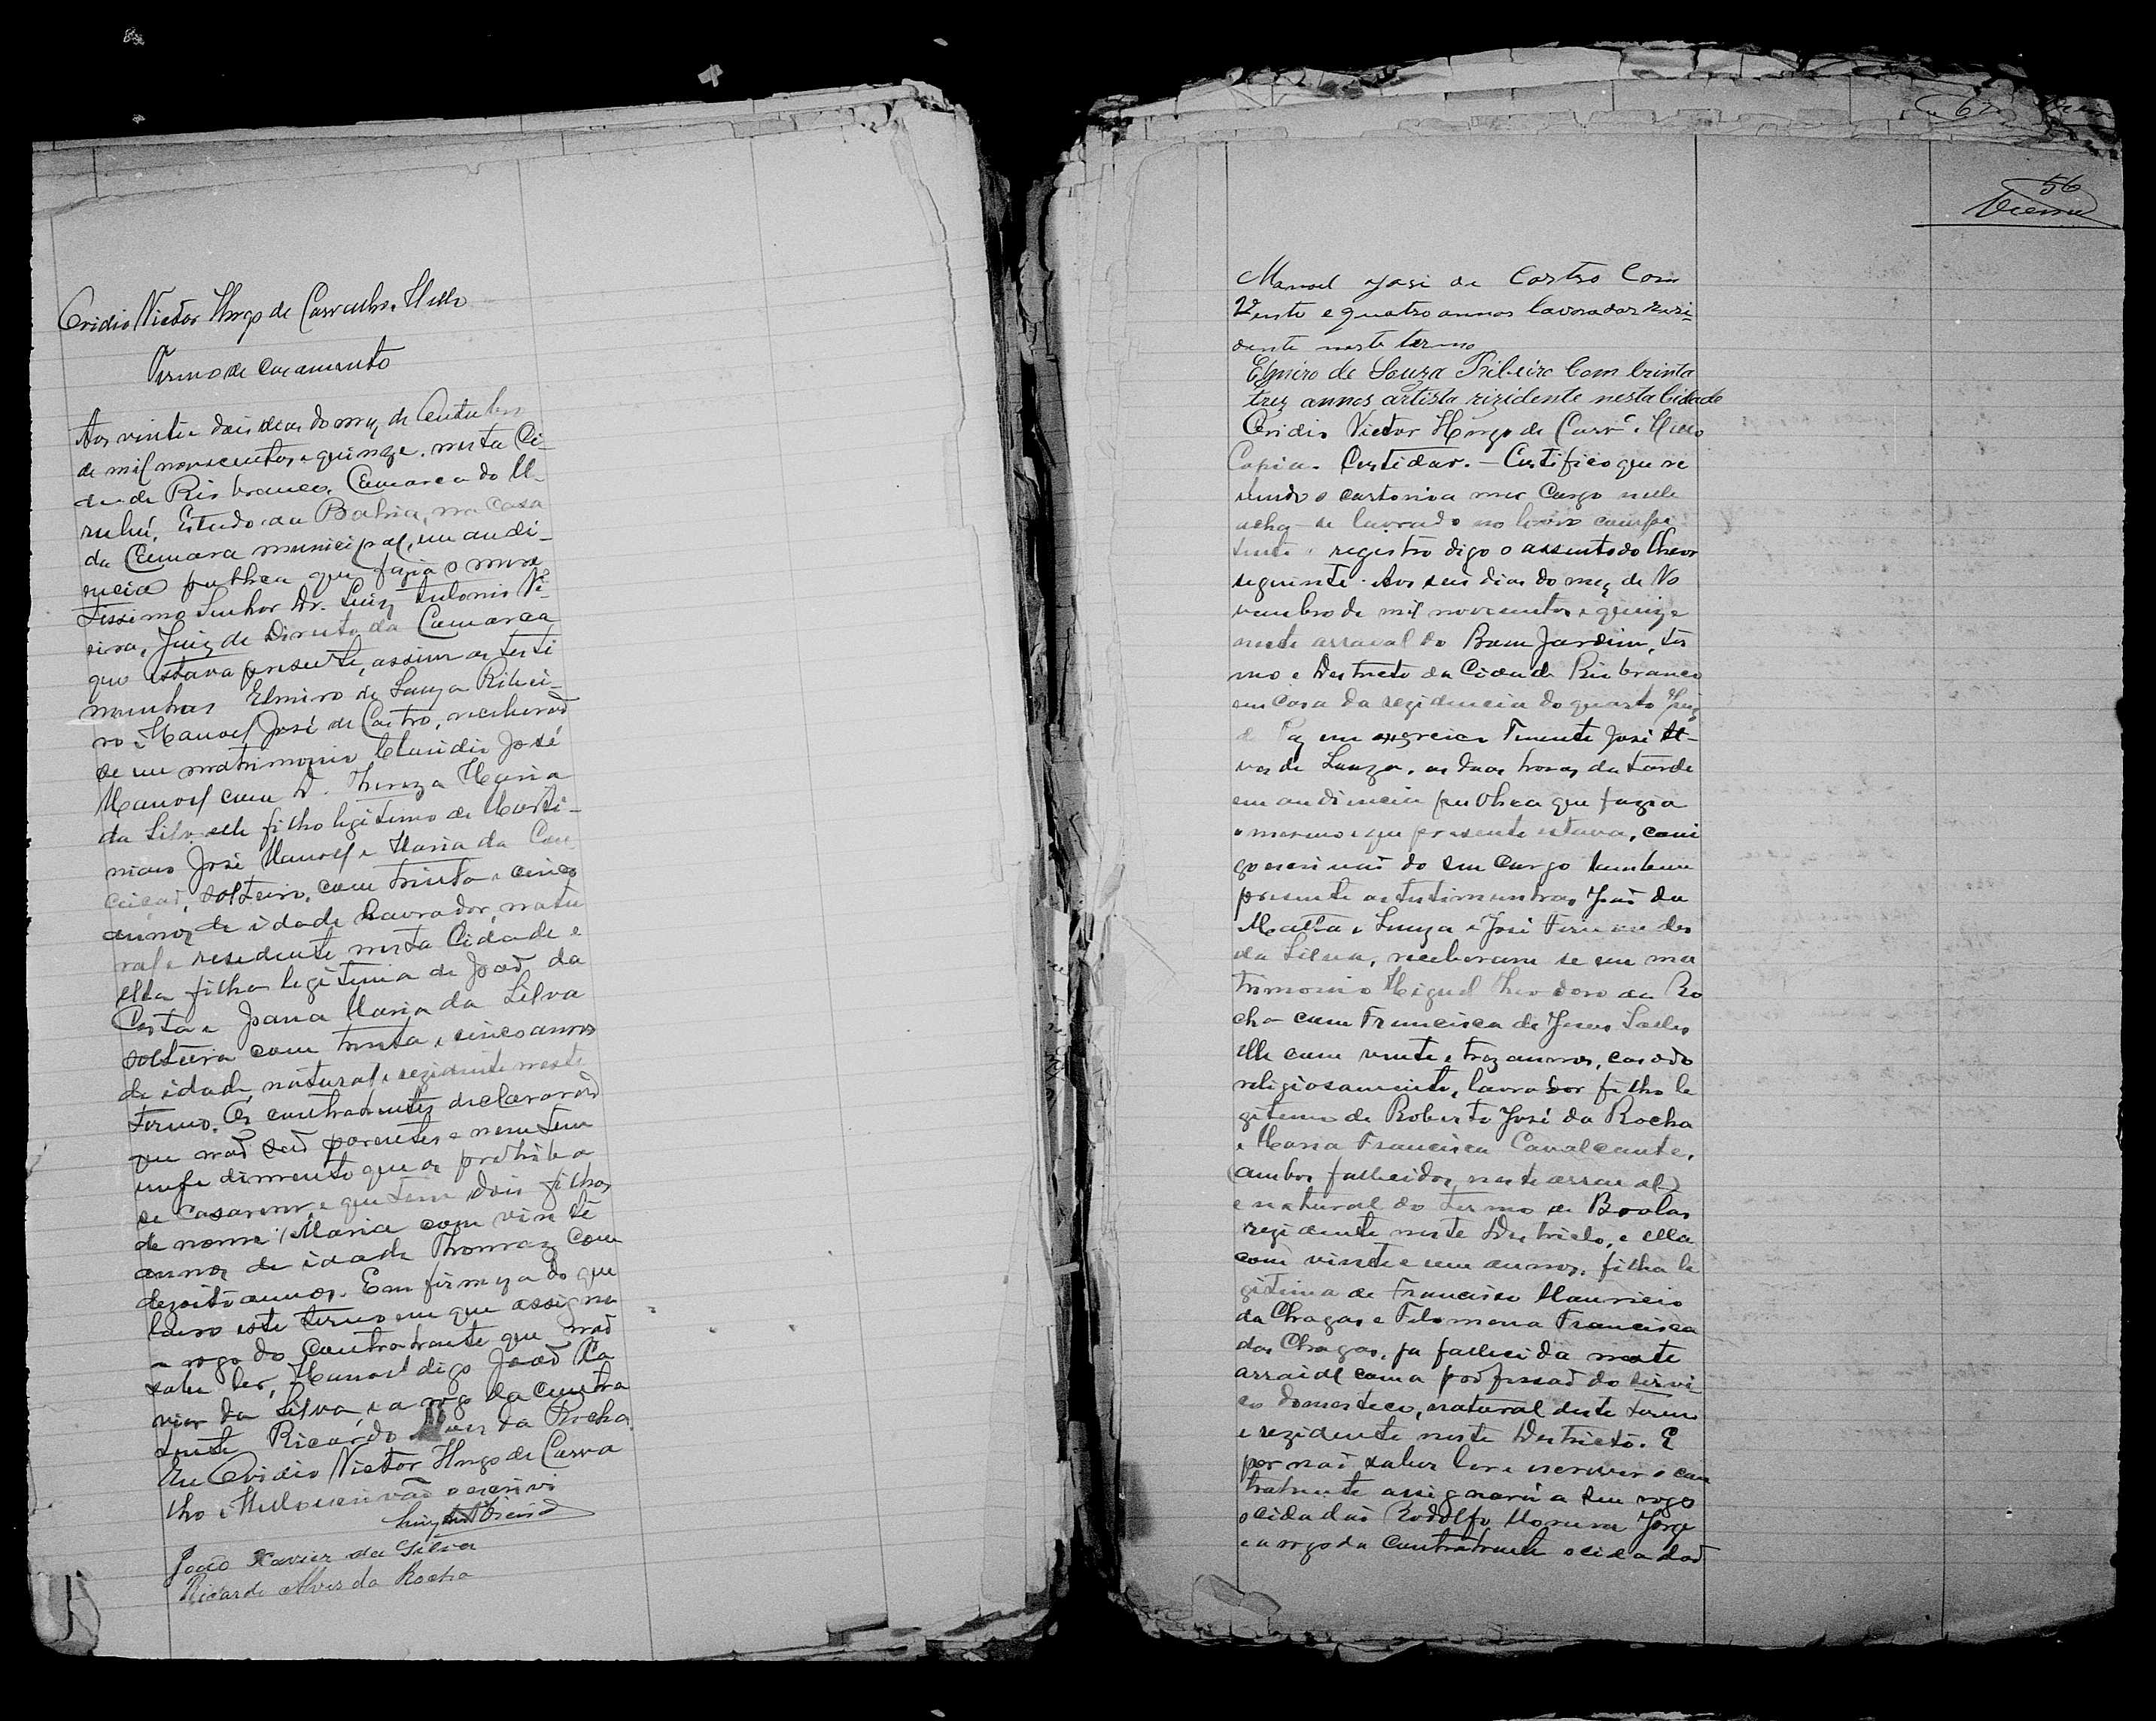 Ovidio Victor Hugo de Carvalho e Mello
Termo de casamento
Aos vinte e dois dias do mez de Outubro
de mil novecentos e quinze, nesta Ci-
dade de Rio branco, Comarca do U-
rubú, Estado da Bahia, na Casa
da Camara municipal, em audi-
encia publica que fazia o mere
tissimo Senhor Dr. Luiz Antonio Vi-
eira, Juiz de Direito da Comarca
que estava presente, assim as testi
munhas Elmiro de Souza Ribei-
ro e Manoel José de Castro, receberão
se em matrimonio Claudio José
Manoel com D. Thereza Maria
da Silva elle filho legitimo de Marti-
niano José Manoel e Maria da Con
ceição, solteiro, com trinta e cinco
annos de idade lavrador, natu
ral e residente nesta Cidade e
ella filha legitima de João da
Costa e Joana Maria da Silva
solteira com trinta e cinco annos
de idade, natural e rezidente neste
termo. Os contrahentes declararão
que não são parentes e nem tem
empedimento que os prohiba
se casarem, e que tem dois filhos
de nome: Maria com vinte
annos de idade Thomaz com
dezoito annos. Em firmeza do que
lavro este termo em que assigna
a rogo do contrahente que não
sabe ler, Manoel digo João Xa
vier da Silva, e a rogo da contra
hente Ricardo Alves da Rocha
Eu Ovidio Victor Hugo de Carva
lho e Mello escrivão o escrivi
Luiz Ant Vieira
João Xavier da Silva
Ricardo Alves da Rocha
56
Vieira
Manoel José de Castro Com
Vente e quatro annos lavorador rezi-
dente neste termo
Elmiro de Souza Ribeiro Com trinta
trez annos artista rizidente nesta Cidade
Ovidio Victor Hugo de Carvº e Mello
Copia. Certidão. — Certifico que re
vendo o cartorio a meu Cargo nelle
acha-se lavrado no livro compe
tente o registro digo o assento do theor
seguinte. Aos seis dias do mez de No
vembro de mil novecentos e quinze
neste arraial do Bom Jardim, ter
mo e Destricto da Cidade Rio branco
em casa da rezidencia do quarto Juiz
de Paz em exercicio Tenente José Al-
ves de Souza, as duas horas da tarde
em audiencia publica que fazia
o mesmo e que presente estava, comi
go escrivão do seu cargo tambem
presente as testimunhas João da
Matta e Souza e José Fernandes
da Silva, receberam se em ma
trimonio Miguel Theodoro da Ro
cha com Francisca de Jesus Salles
elle com vinte e trez annos, casado
religiosamente, lavrador filho le
gitimo de Roberto José da Rocha
e Maria Francisca Cavalcante,
(ambos fallecidos neste arraial)
e natural do termo de Brotas
rezidente neste Destricto, e ella
com vinte e um annos, filha le
gitima de Francisco Mauricio
das Chagas e Filomena Francisca
das Chagas, ja fallecida neste
arraial com a profissão do servi-
ço domestico, natural deste termo
e rezidente neste Destricto. E
por não saber ler e escrever o con
trahente assignará a seu rogo
o cidadão Rodolfo Jorge
e a rogo da Contrahente o cidadão